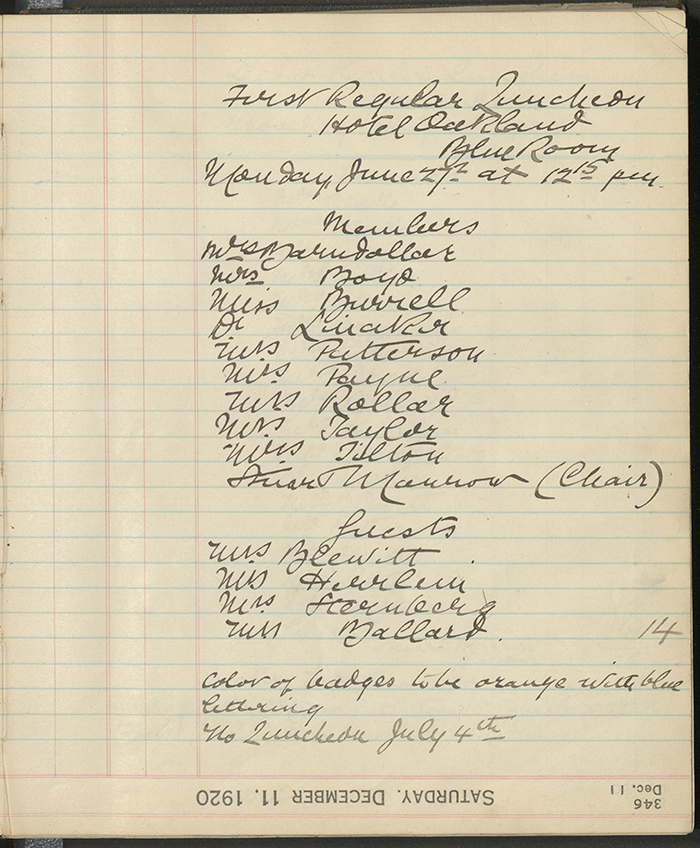 First Regular Luncheon
Hotel Oakland
Blue Room
Monday, June 27th at 12 15 pm.
Members
Mrs Barndollar
Mrs Boyd
Miss Burrell
Dr Linaker
Mrs Patterson
Mrs Payne
Mrs Rollar
Mrs Taylor
Mrs Tilton
Stuart Monrow (Chair)
Guests
Mrs Blewitt
Mrs Herrlein
Mrs Sternberg
Mrs Ballard. 14
Color of badges to be orange with blue
lettering
No Luncheon July 4th
SATURDAY. DECEMBER 11. 1920
346
Dec. 11